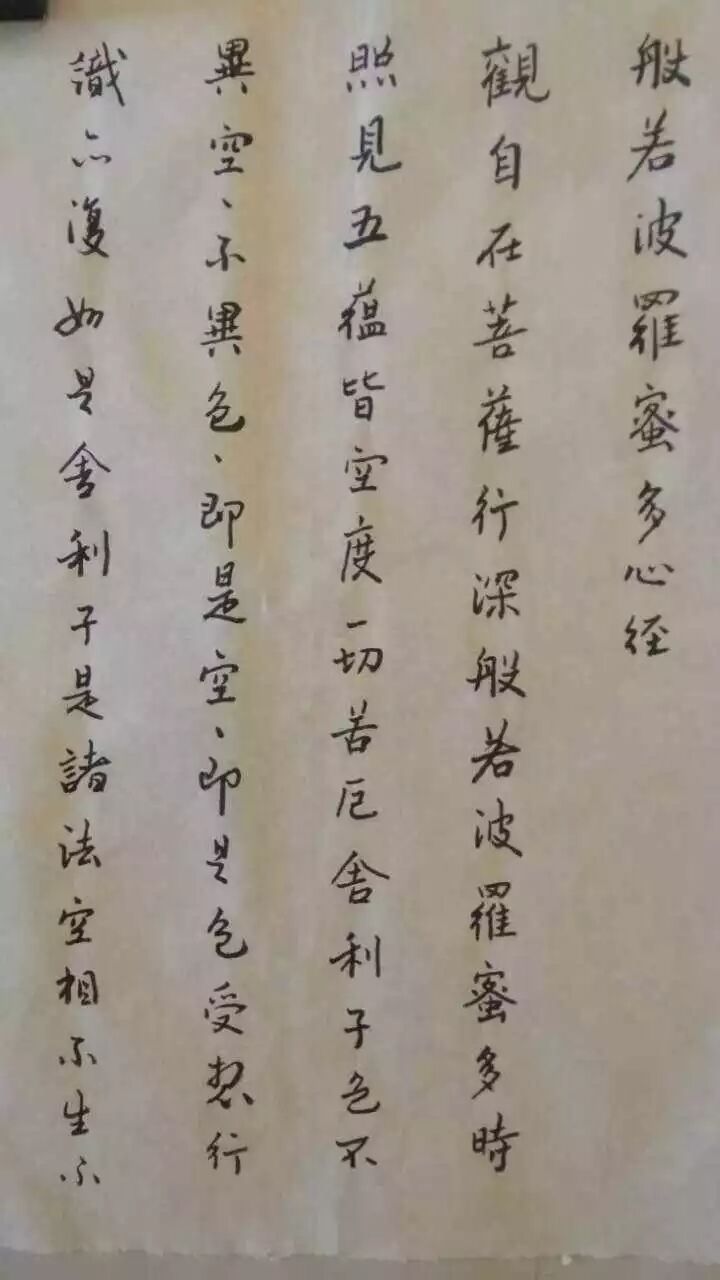 般若波羅蜜多心経
觀自在菩薩行深般若波羅蜜多時
照見五蘊皆空度一切苦厄舍利子色不
異空、不異色、即是空、即是色受想行
識亦復如是舍利子是諸法空相不生不